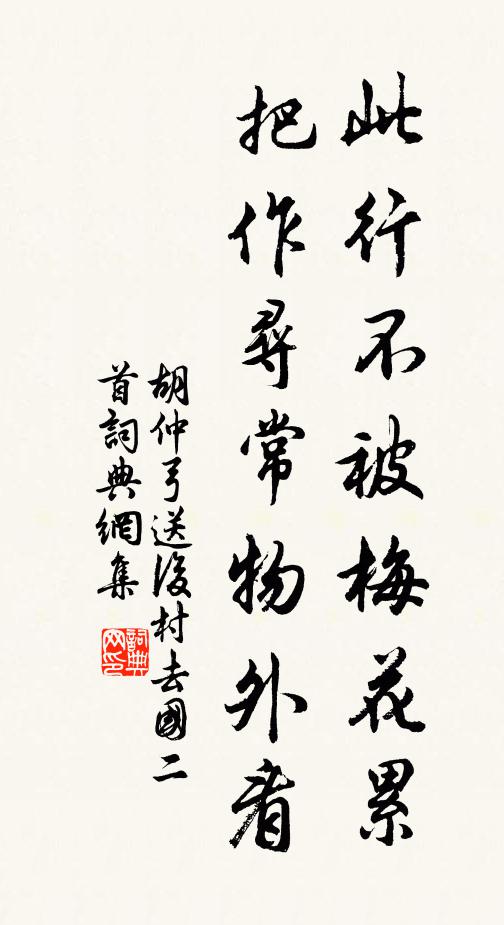 此行不被梅花累
把作尋常物外看
胡仲弓送後村去國二
首詞典網集
詞典
网印